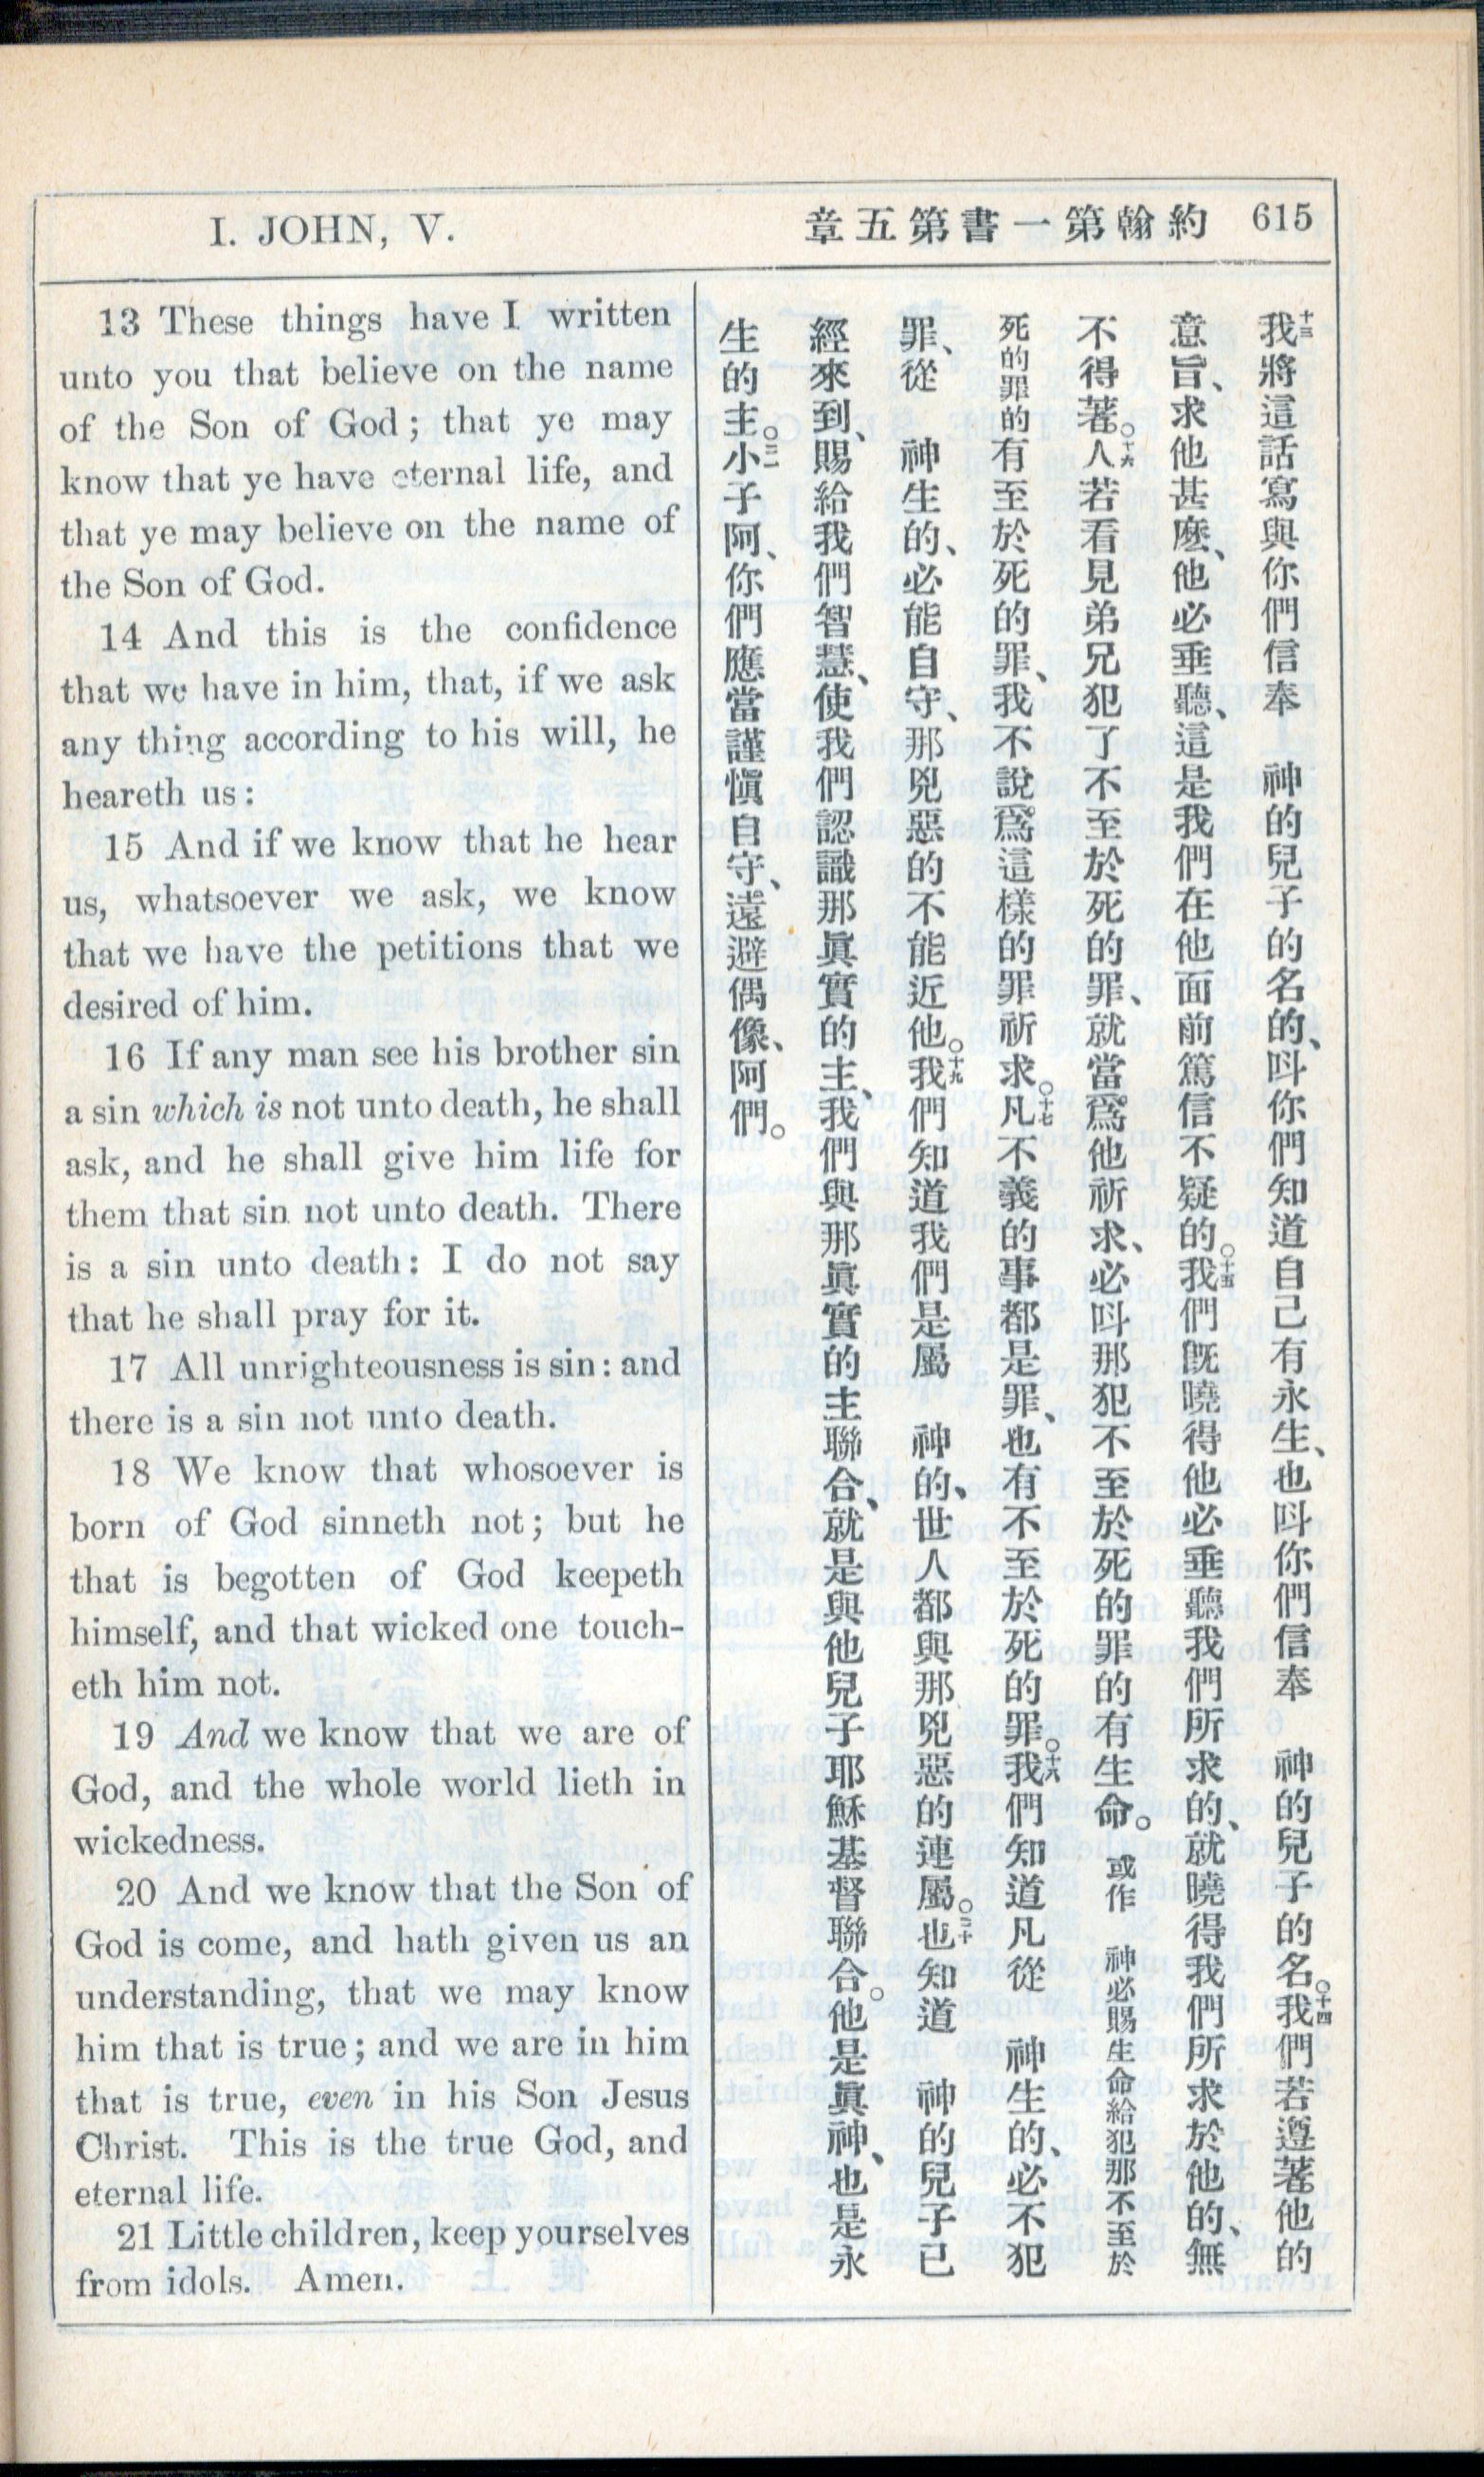 I. JOHN, V.
約翰第一書第五章 615
13 These things have I written
unto you that believe on the name
of the Son of God; that ye may
know that ye have eternal life, and
that ye may believe on the name of
the Son of God.
14 And this is the confidence
that we have in him, that, if we ask
any thing according to his will, he
heareth us:
15 And if we know that he hear
us, whatsoever we ask, we know
that we have the petitions that we
desired of him.
16 If any man see his brother sin
a sin which is not unto death, he shall
ask, and he shall give him life for
them that sin not unto death. There
is a sin unto death: I do not say
that he shall pray for it.
17 All unrighteousness is sin: and
there is a sin not unto death.
18 We know that whosoever is
born of God sinneth not; but he
that is begotten of God keepeth
himself, and that wicked one touch-
eth him not.
19 And we know that we are of
God, and the whole world lieth in
wickedness.
20 And we know that the Son of
God is come, and hath given us an
understanding, that we may know
him that is true; and we are in him
that is true, even in his Son Jesus
Christ. This is the true God, and
eternal life.
21 Little children, keep yourselves
from idols. Amen.
十三我將這話寫與你們信奉 神的兒子的名的、呌你們知道自己有永生、也呌你們信奉 神的兒子的名。十四我們若遵著他的
意旨、求他甚麽、他必垂聽、這是我們在他面前篤信不疑的。十五我們旣曉得他必垂聽我們所求的、就曉得我們所求於他的、無
不得著。十六人若看見弟兄犯了不至於死的罪、就當爲他祈求、必呌那犯不至於死的罪的有生命。或作 神必賜生命給犯那不至於
死的罪的有至於死的罪、我不說爲這樣的罪祈求。十七凡不義的事都是罪、也有不至於死的罪。十六我們知道凡從 神生的、必不犯
罪、從 神生的、必能自守、那兇惡的不能近他。十九我們知道我們是屬 神的、世人都與那兇惡的連屬。二十也知道 神的兒子已
經來到、賜給我們智慧、使我們認識那眞實的主、我們與那眞實的主聯合、就是與他兒子耶穌基督聯合。他是眞神、也是永
生的主。二一小子阿、你們應當謹愼自守、遠避偶像、阿們。